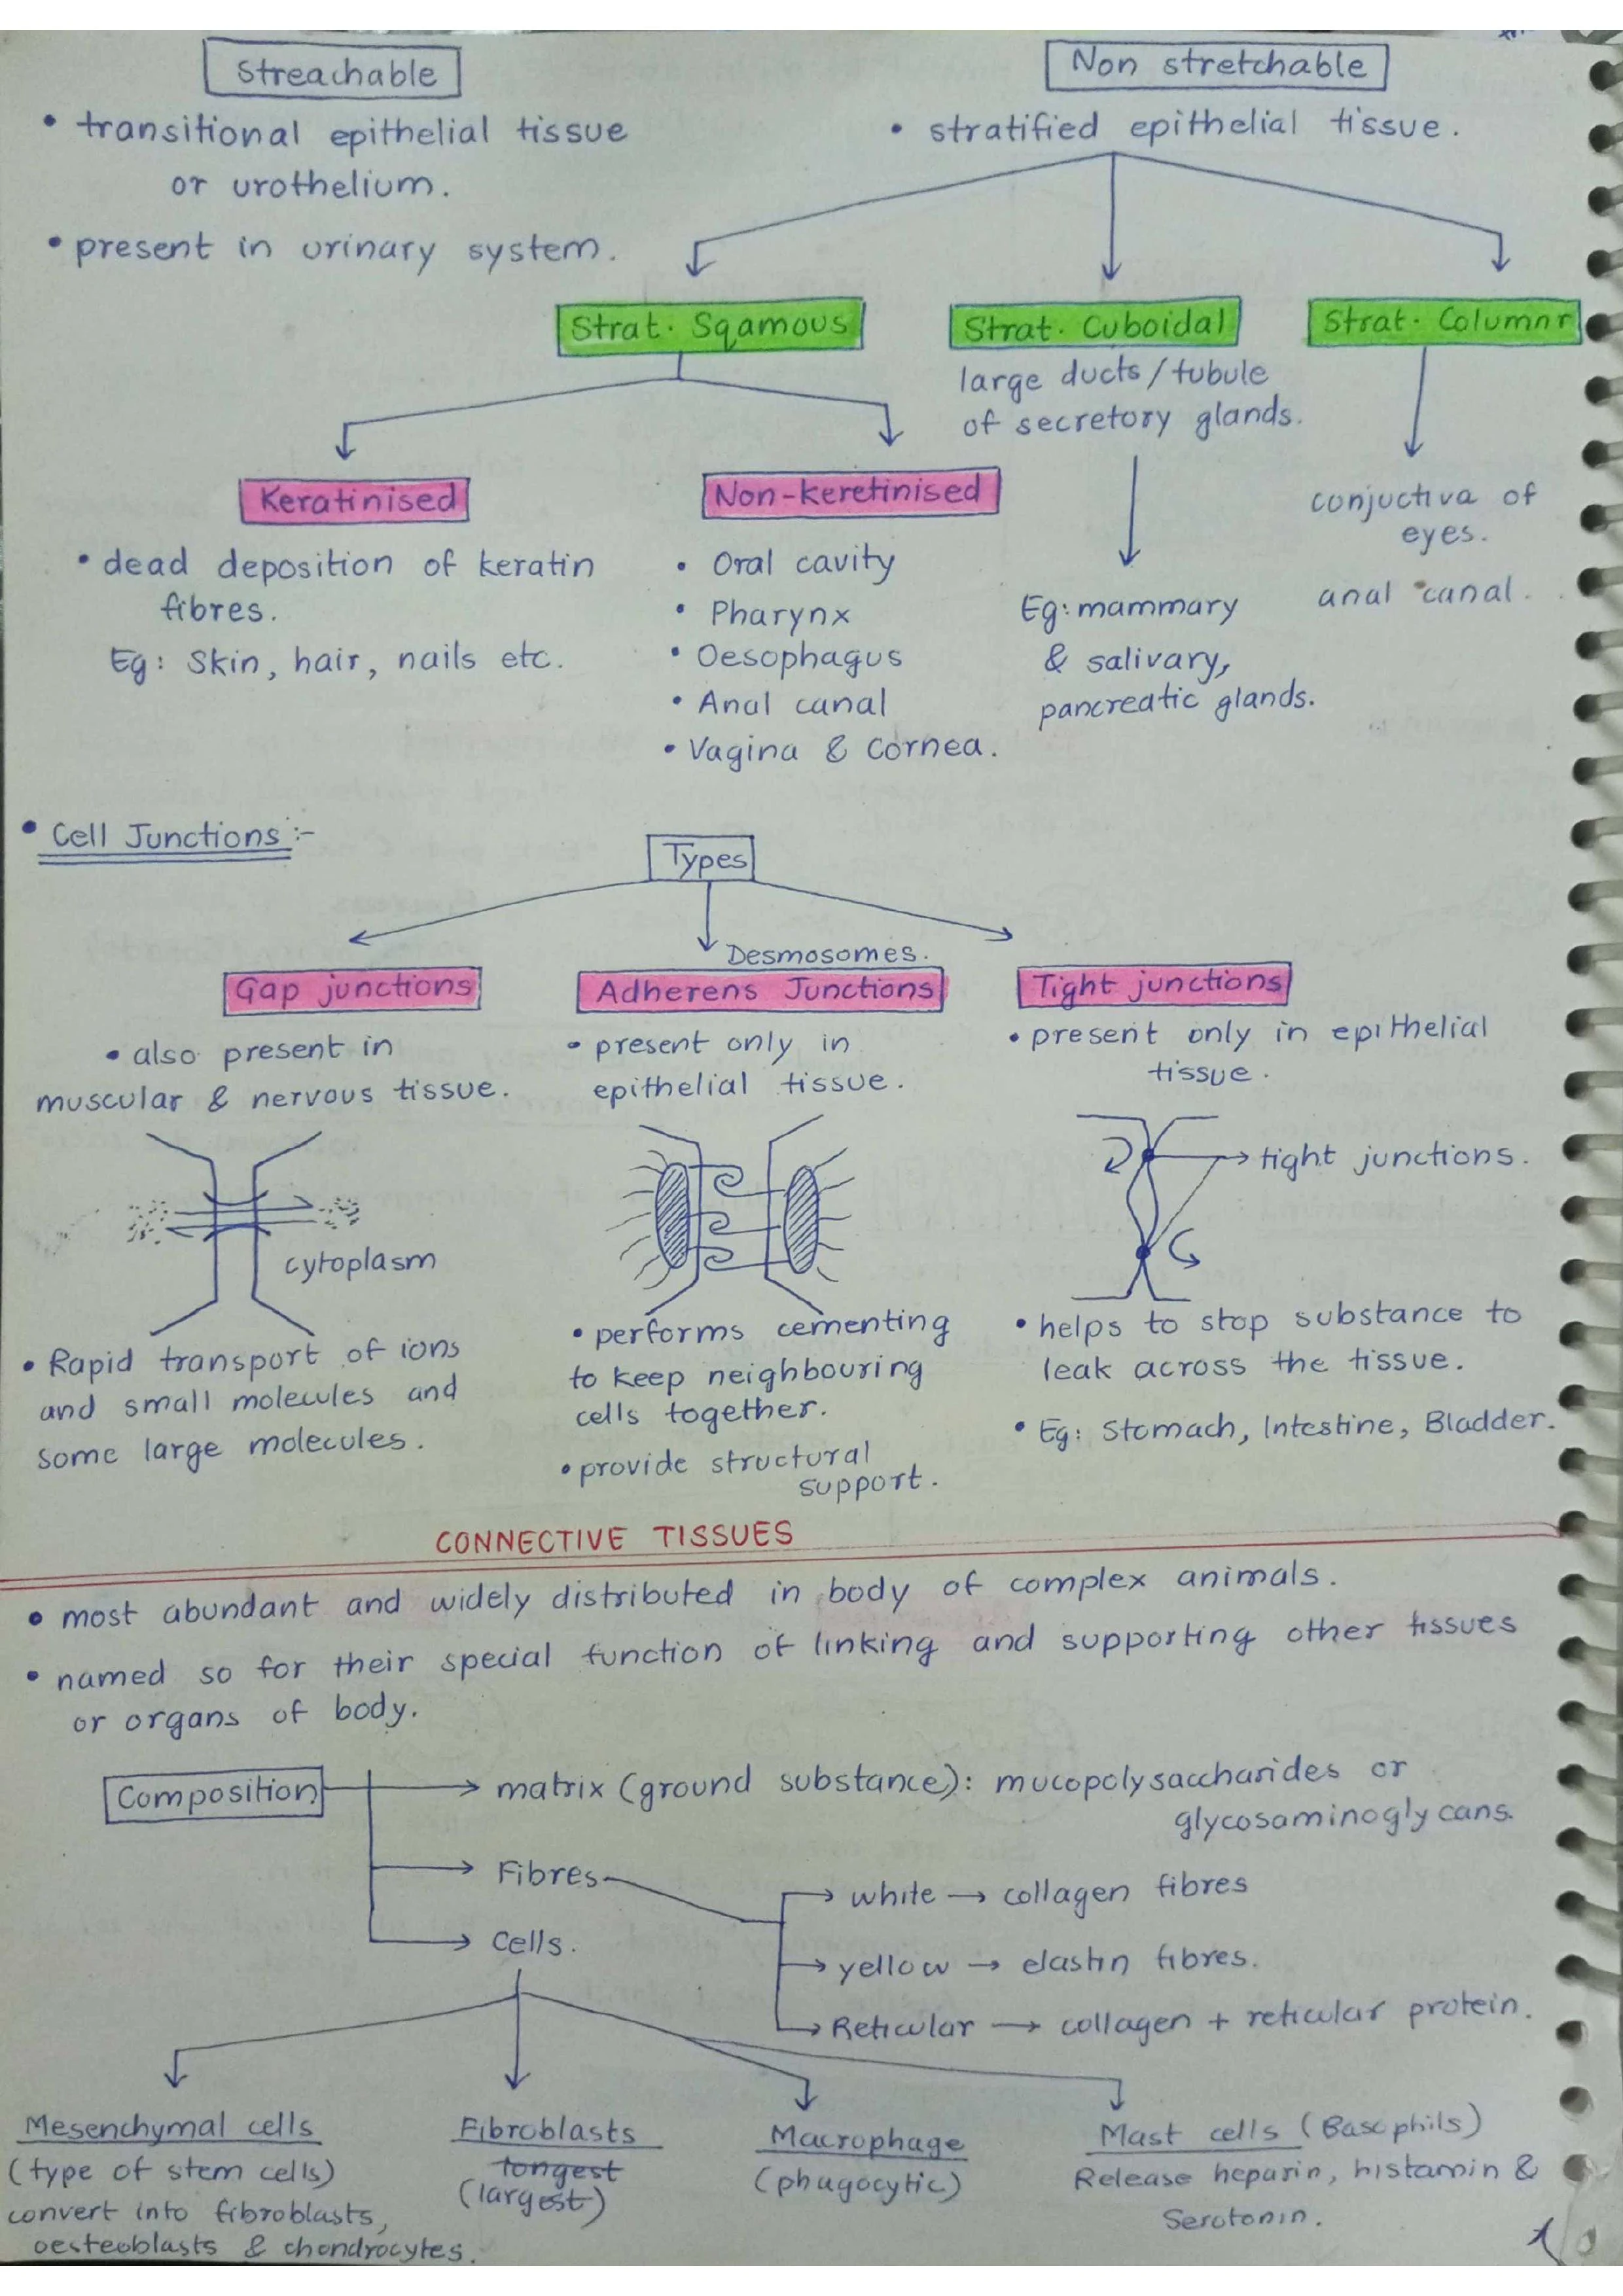 Streachable
• transitional epithelial tissue
or urothelium.
• present in urinary system.
Non stretchable
• stratified epithelial tissue.
Strat. Sqamous
Strat. Cuboidal
large ducts/tubule
of secretory glands.
Eg: mammary
& salivary,
pancreatic glands.
Strat. Columnr
conjuctiva of
eyes.
anal canal.
Keratinised
• dead deposition of keratin
fibres.
Eg: Skin, hair, nails etc.
Non-keretinised
• Oral cavity
• Pharynx
• Oesophagus
• Anal canal
• Vagina & Cornea.
• Cell Junctions:-
Types
Gap junctions
• also present in
muscular & nervous tissue.
cytoplasm
• Rapid transport of ions
and small molecules and
some large molecules.
Desmosomes.
Adherens Junctions
• present only in
epithelial tissue.
• performs cementing
to keep neighbouring
cells together.
• provide structural
support.
Tight junctions
• present only in epithelial
tissue.
tight junctions.
• helps to stop substance to
leak across the tissue.
• Eg: Stomach, Intestine, Bladder.
CONNECTIVE TISSUES
• most abundant and widely distributed in body of complex animals.
• named so for their special function of linking and supporting other tissues
or organs of body.
Composition → matrix (ground substance): mucopolysaccharides or
glycosaminoglycans.
→ Fibres
→ white → collagen fibres
→ yellow → elastin fibres.
→ Reticular → collagen + reticular protein.
→ Cells.
Mesenchymal cells
(type of stem cells)
convert into fibroblasts,
oesteoblasts & chondrocytes.
Fibroblasts
longest
(largest)
Macrophage
(phagocytic)
Mast cells (Basophils)
Release heparin, histamin &
Serotonin.